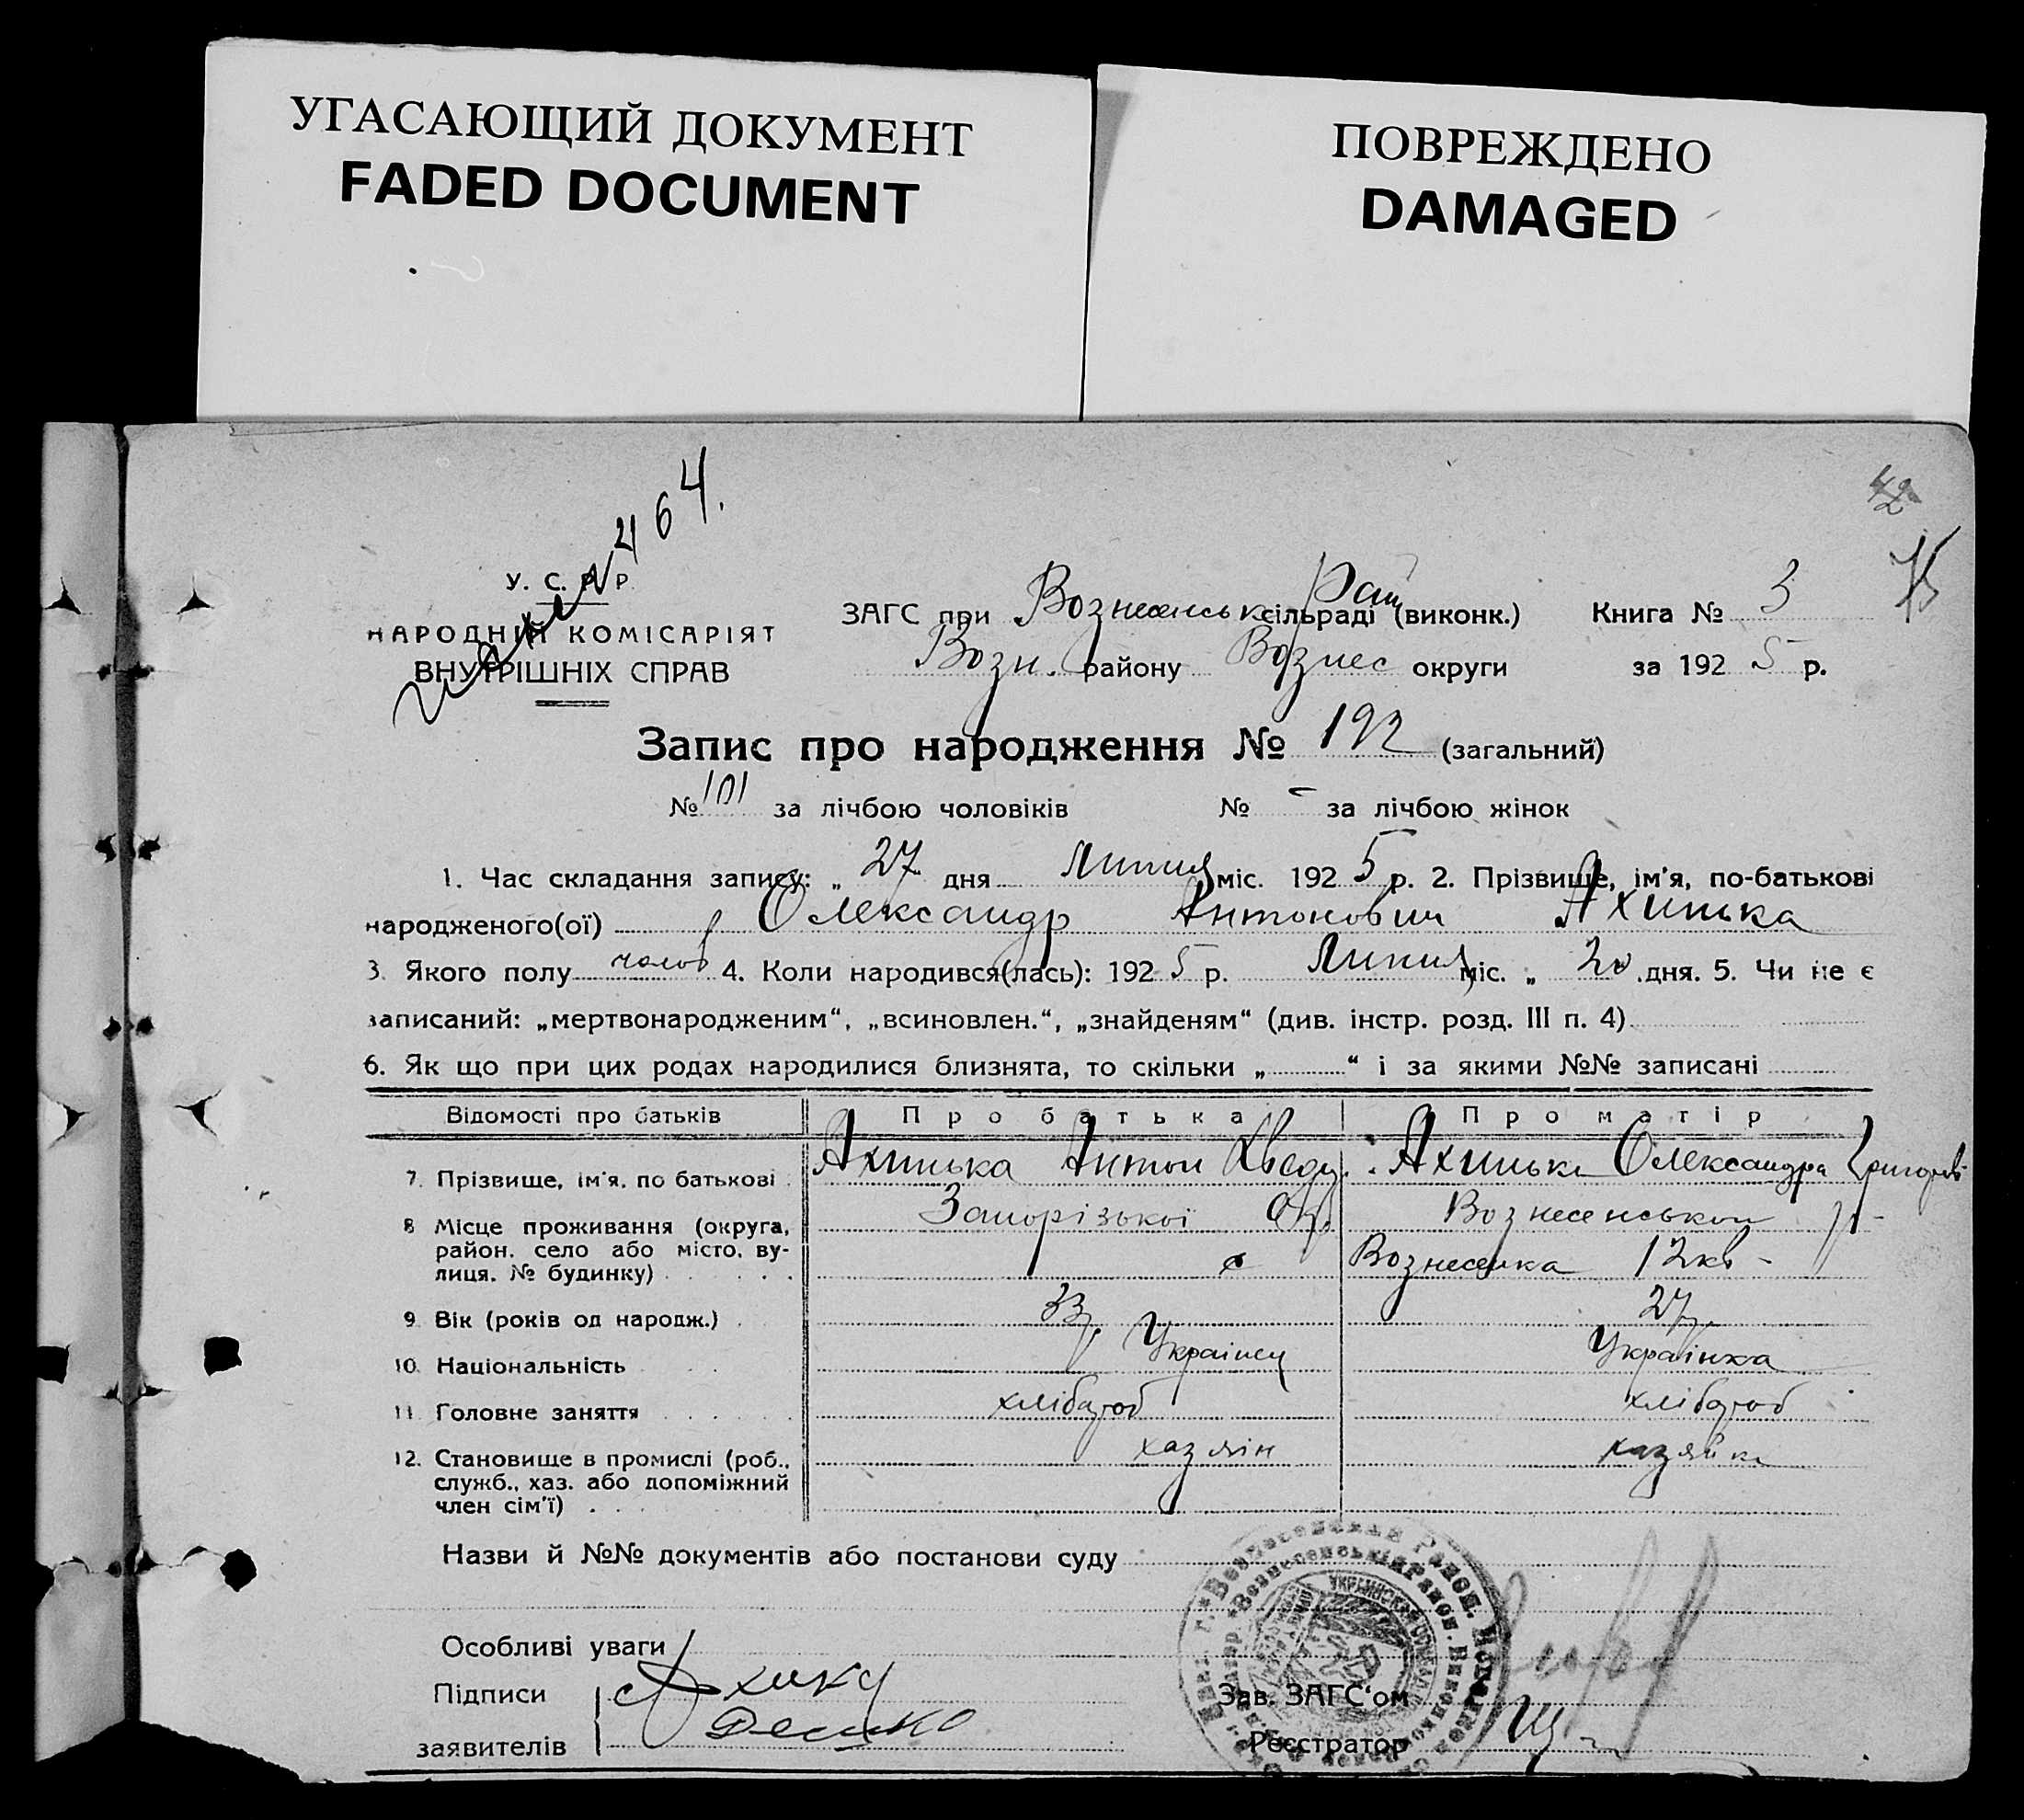 УГАСАЮЩИЙ ДОКУМЕНТ
FADED DOCUMENT
ПОВРЕЖДЕНО
DAMAGED
464.
42
У. С. Р. Р.
НАРОДНІЙ КОМІСАРІЯТ
ВНУТРІШНІХ СПРАВ
ЗАГС при Вознесенськ сільраді Рай (виконк.) Книга № 3
Возн. району Вознес округи за 192 5 р.
Запис про народження № 192 (загальний)
№ 101 за лічбою чоловіків № - за лічбою жінок
1. Час складання запису: „ 27 дня Липня міс. 192 5 р. 2. Прізвище, ім'я, по-батькові
народженого(ої) Олександр Антонович Ахинька
3. Якого полу чолов 4. Коли народився(лась): 192 5 р. Липня міс. „ 20 дня. 5. Чи не є
записаний: „мертвонародженим“, „всиновлен.“, „знайденям“ (див. інстр. розд. III п. 4)
6. Як що при цих родах народилися близнята, то скільки „ “ і за якими №№ записані
Відомості про батьків Про батька Про матір
7. Прізвище, ім'я, по батькові Ахинька Антон Ахинька Олександра
8 Місце проживання (округа, Запорізької Окр. Вознесенського р-
район, село або місто, ву-
лиця, № будинку) с Вознесенка 12 кв -
9. Вік (років од народж.) 33 р. 27 р.
10. Національність Українец Українка
11. Головне заняття хлібороб хлібороб
12. Становище в промислі (роб., хазяін хазяйка
служб., хаз. або допоміжний
член сім'ї)
Назви й №№ документів або постанови суду
Особливі уваги
Підписи
заявителів
Зав. ЗАГС'ом
Реєстратор